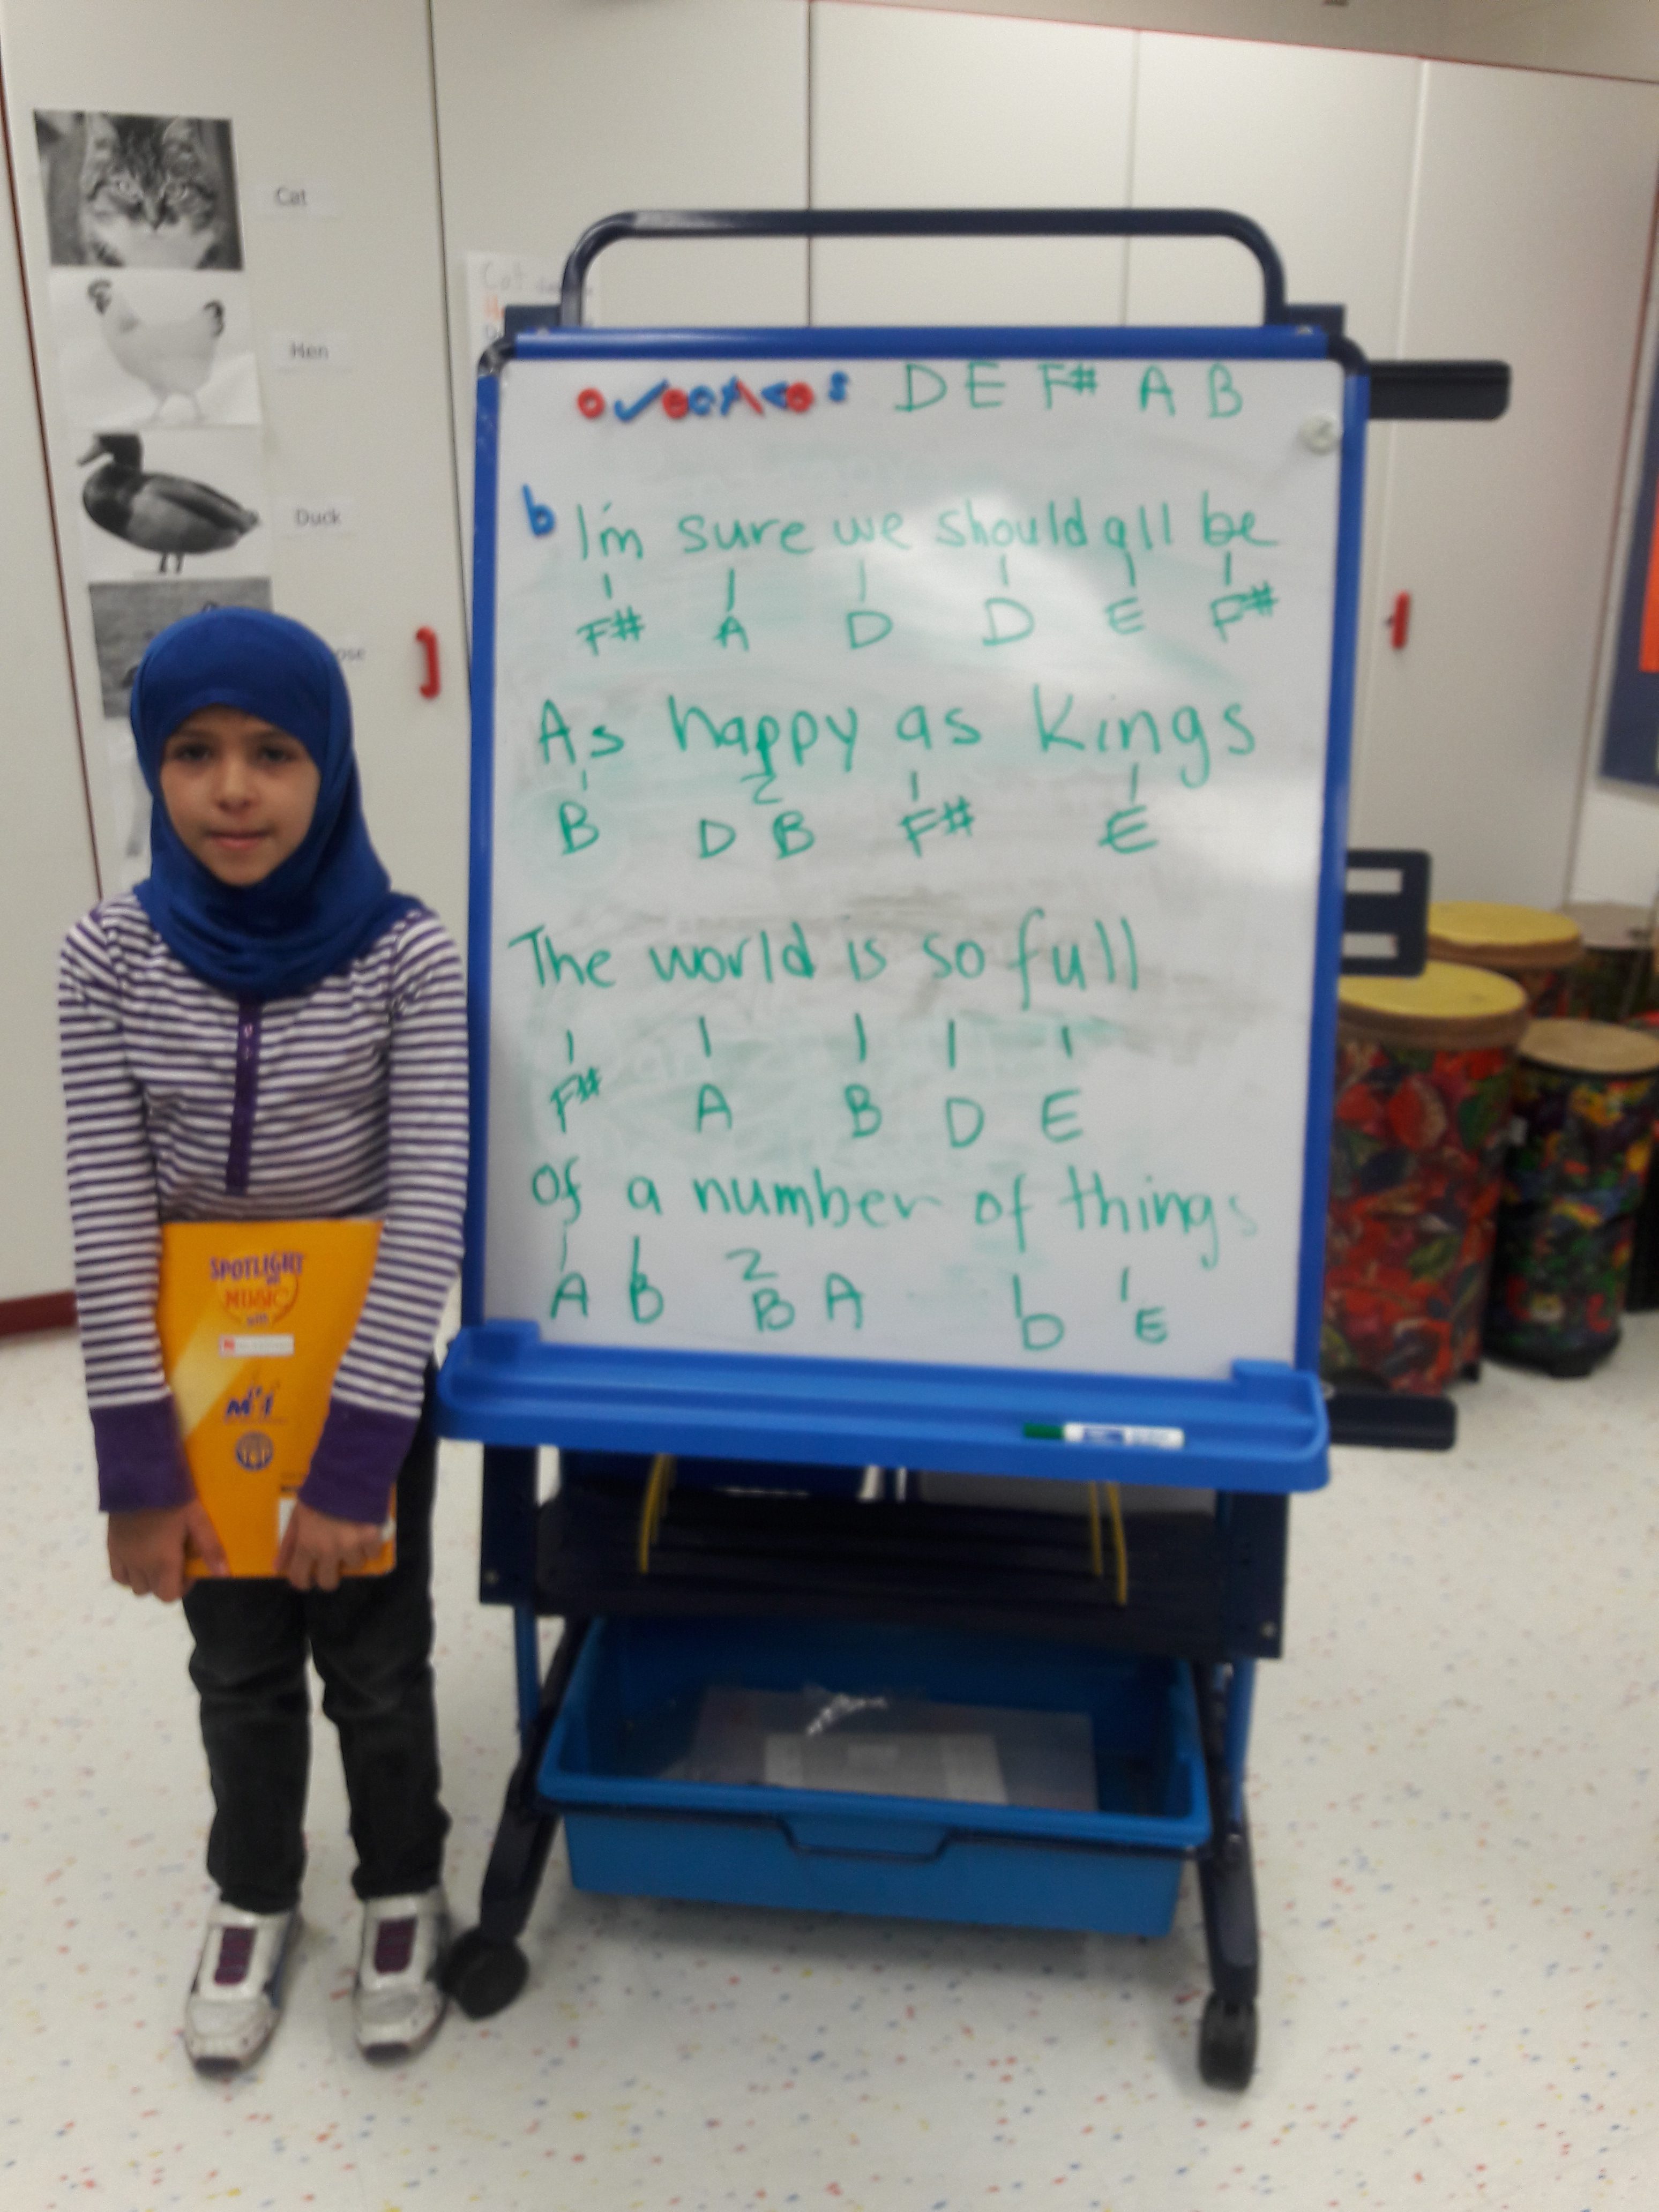 Cat
Hen
Duck
ose
Cat
D E F# A B
b I'm sure we should all be
1 1 1 1 1 1
F# A D D E F#
As happy as Kings
1 2 1 1
B D B F# E
The world is so full
1 1 1 1 1
F# A B D E
of a number of things
1 1 2 1 1
A B B A D E
SPOTLIGHT
on
MUSIC
with